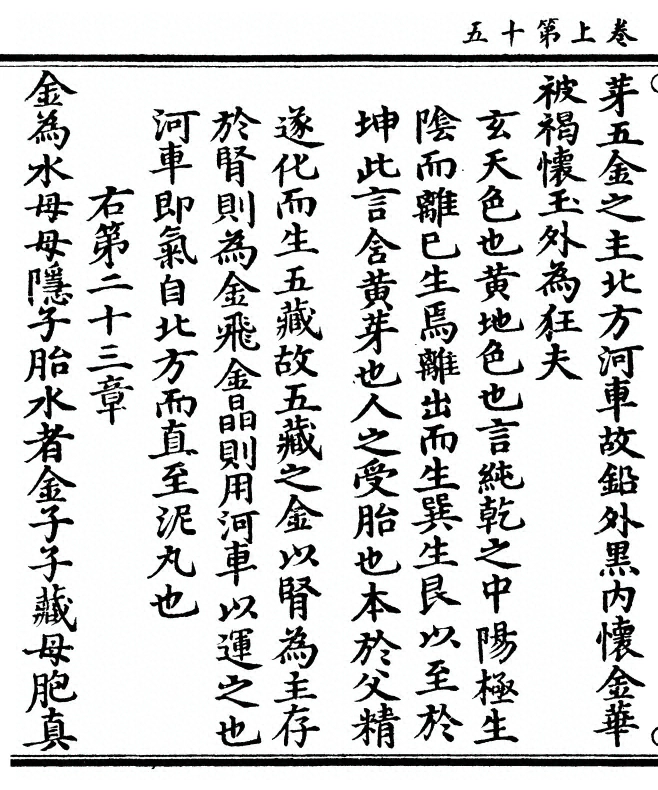 卷上第十五
芽五金之主北方河車故鉛外黑內懷金華
被褐懷玉外為狂夫
玄天色也黄地色也言純乾之中陽極生
陰而離巳生焉離出而生巽生艮以至於
坤此言含黄芽也人之受胎也本於父精
遂化而生五藏故五藏之金以腎為主存
於腎則為金飛金晶則用河車以運之也
河車即氣自北方而直至泥丸也
右第二十三章
金為水母母隱子胎水者金子子藏母胞真